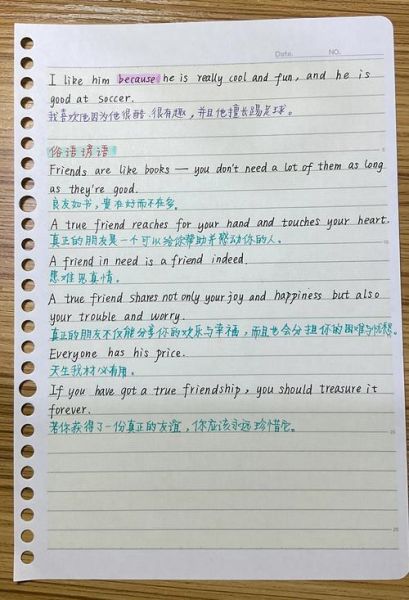 Date. NO.
I like him because he is really cool and fun, and he is
good at soccer.
我喜欢他因为他很酷、很有趣，并且他擅长踢足球。
俗语谚语
Friends are like books — you don't need a lot of them as long
as they're good.
良友如书，贵在好而不在多。
A true friend reaches for your hand and touches your heart.
真正的朋友是一个可以给你帮助并感动你的人。
A friend in need is a friend indeed.
患难见真情。
A true friend shares not only your joy and happiness but also
your trouble and worry.
真正的朋友不仅能分享你的欢乐与幸福，而且也会分担你的困难与忧愁。
Everyone has his price.
天生我材必有用。
If you have got a true friendship, you should treasure it
forever.
若你获得了一份真正的友谊，你应该永远珍惜它。